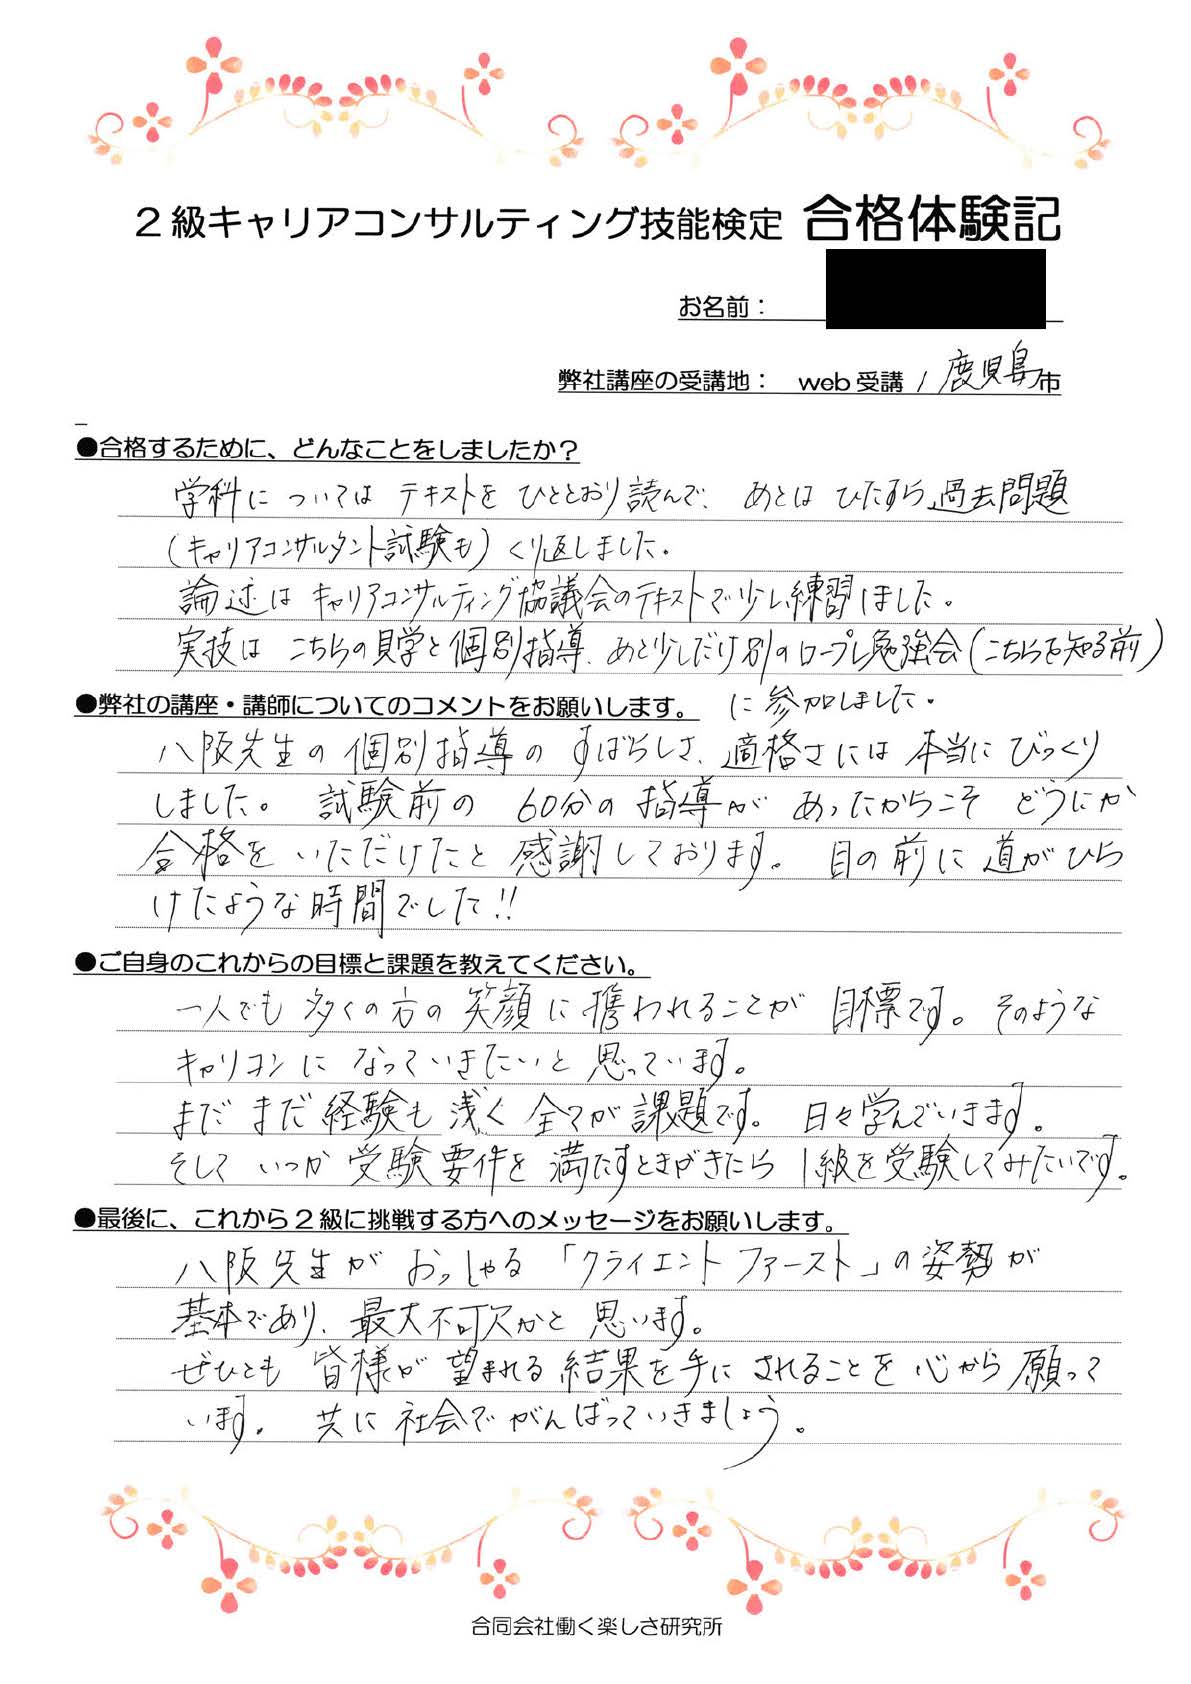 2級キャリアコンサルティング技能検定 合格体験記
お名前：
弊社講座の受講地： web受講 / 鹿児島市
●合格するために、どんなことをしましたか？
学科については テキストを ひととおり読んで、 あとは ひたすら過去問題
(キャリアコンサルタント試験も) くり返しました。
論述は キャリアコンサルティング協議会のテキストで少し練習しました。
実技は こちらの見学と個別指導、あと少しだけ別のロープレ勉強会(こちらを知る前)
に参加しました。
●弊社の講座・講師についてのコメントをお願いします。
八阪先生の 個別指導の すばらしさ、適格さには 本当にびっくり
しました。 試験前の 60分の指導が あったからこそ どうにか
合格を いただけたと 感謝しております。 目の前に道がひら
けたような時間でした!!
●ご自身のこれからの目標と課題を教えてください。
一人でも 多くの方の 笑顔に携われることが 目標です。そのような
キャリコンに なっていきたいと 思っています。
まだまだ経験も浅く 全てが課題です。 日々学んでいきます。
そして いつか 受験要件を満たすときがきたら 1級を受験してみたいです。
●最後に、これから2級に挑戦する方へのメッセージをお願いします。
八阪先生が おっしゃる 「クライエント ファースト」の姿勢が
基本であり、最大不可欠かと 思います。
ぜひとも 皆様が 望まれる 結果を手に されることを 心から願って
います。 共に社会でがんばっていきましょう。
合同会社働く楽しさ研究所